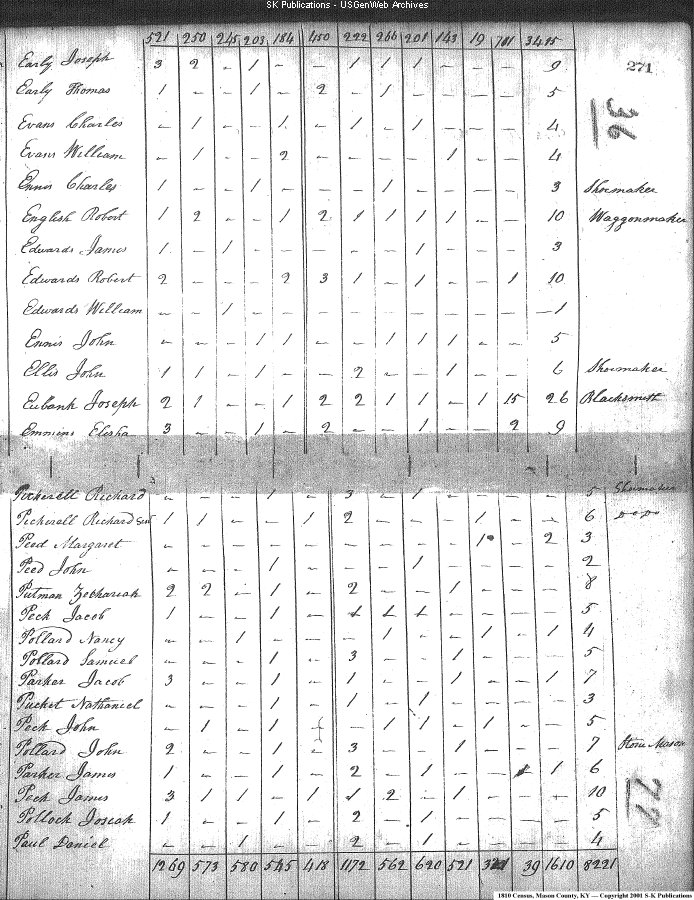 SK Publications - USGenWeb Archives
521 250 245 203 184 450 222 266 201 143 19 701 3495
271
Early Joseph 3 2 - 1 - - 1 1 1 - - - 9
Early Thomas 1 - - 1 - 2 - 1 - - - - 5
36
Evans Charles - 1 - - 1 - 1 - 1 - - - 4
Evans William - 1 - - 2 - - - - 1 - - 4
Ennis Charles 1 - - 1 - - - 1 - - - - 3 Shoemaker
English Robert 1 2 - - 1 2 1 1 1 1 - - 10 Waggonmaker
Edwards James 1 - 1 - - - - - 1 - - - 3
Edwards Robert 2 - - - 2 3 1 - 1 - - 1 10
Edwards William - - 1 - - - - - - - - - 1
Ennis John - - - 1 1 - - 1 1 1 - - 5
Ellis John 1 1 - 1 - - 2 - - 1 - - 6 Shoemaker
Eubank Joseph 2 1 - - 1 2 2 1 1 - 1 15 26 Blacksmith
Emmins Elisha 3 - - 1 - 2 - - 1 - - 2 9
Pickerall Richard - - - 1 - 3 - 1 - - - 5 Shoemaker
Pickerall Richard Senr 1 1 - - 1 2 - - - 1 - - 6 Do Do
Peed Margaret - - - - - - - - - 1 - 2 3
Peed John - - - 1 - - - 1 - - - 2
Putman Zechariah 2 2 - 1 - 2 - - 1 - - 8
Peck Jacob 1 - - 1 - 1 1 1 - - - 5
Pollard Nancy - - 1 - - - 1 - - 1 - 1 4
Pollard Samuel - - - 1 - 3 - - 1 - - 5
Parker Jacob 3 - - 1 - 1 - - 1 - 1 7
Pucket Nathaniel - - - 1 - 1 - 1 - - - 3
Peck John - 1 - 1 - - 1 1 - 1 - - 5
Pollard John 2 - - 1 - 3 - - 1 - - - 7 Stone Mason
Parker James 1 - - 1 - 2 - 1 - - 1 1 6
Peck James 3 1 1 - 1 1 2 - 1 - - 10
77
Pollock Josiah 1 - - 1 - 2 - 1 - - - 5
Paul Daniel - - 1 - - 2 - 1 - - - 4
1269 573 580 545 418 1172 562 620 521 321 39 1610 8221
1810 Census, Mason County, KY — Copyright 2001 S-K Publications